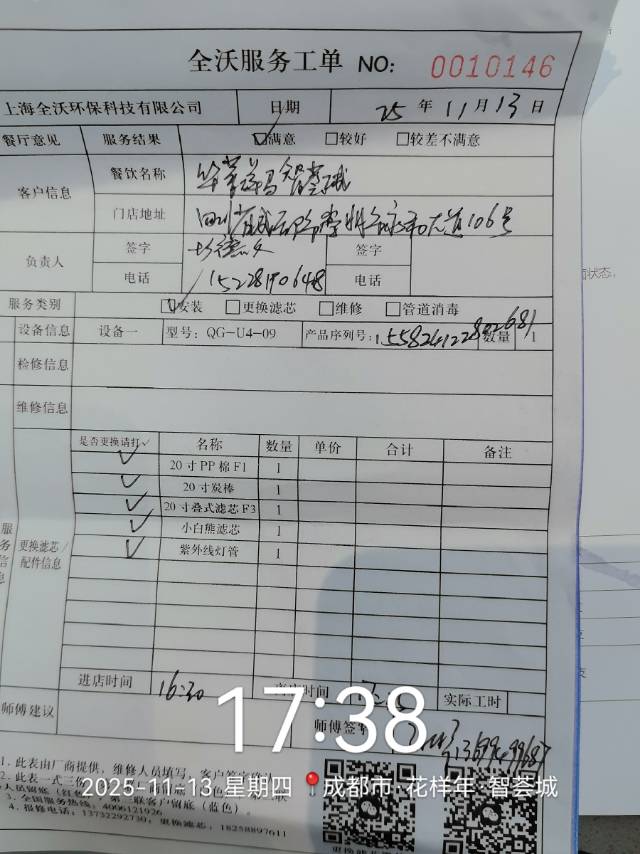 全沃服务工单 NO: 0010146
上海全沃环保科技有限公司 日期 25 年 11 月 13 日
餐厅意见 服务结果 ☑满意 □较好 □较差不满意
客户信息 餐饮名称
门店地址 大道106号
负责人 签字 签字
电话 15228190648 电话
服务类别 ☑安装 □更换滤芯 □维修 □管道消毒
设备信息 设备一 型号: QG-U4-09 产品序列号: 数量 1
检修信息
维修信息
是否更换请打✓ 名称 数量 单价 合计 备注
✓ 20寸PP棉F1 1
✓ 20寸炭棒 1
✓ 20寸叠式滤芯F3 1
✓ 小白熊滤芯 1
✓ 紫外线灯管 1
服务信息 更换滤芯/配件信息
进店时间 16:30 时间 实际工时
师傅建议 师傅签
17:38
1. 此表由厂商提供,维修人员填写,客户签字确认
2. 此表一式三份
2025-11-13 星期四 成都市·花样年·智荟城
3. 全国服务热线: 4006121926
4. 报修电话: 13732292730; 更换滤芯: 18258897611